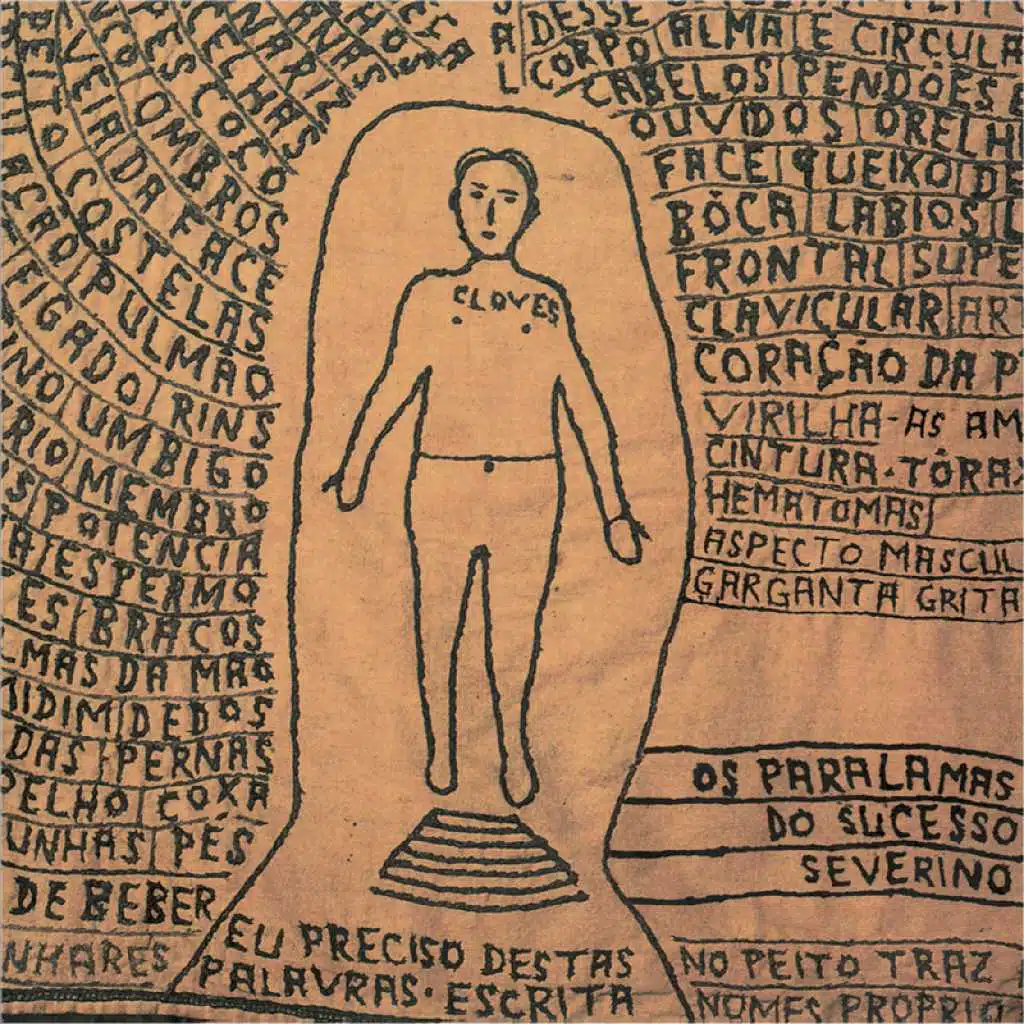 NARIZ
CELHAS
PESCOÇO
OMBROS
VEIRA DA FACE
PEITO COSTELAS
ACRO PULMÃO
FIGADO RINS
NO UMBIGO
RIO MEMBRO
S POTENCIA
A ESPERMO
ES BRACOS
LMAS DA MÃO
MIDIM DEDOS
DAS PERNAS
PELHO COXA
UNHAS PÉS
DE BEBER
NHARES
CLOVES
EU PRECISO DESTAS
PALAVRAS. ESCRITA
DESSE
CORPO ALMA E CIRCULA
CABELOS PENDÕES E
OUVIDOS ORELH
FACE QUEIXO DE
BÔCA LABIOS L
FRONTAL SUPE
CLAVICULAR AR
CORAÇÃO DA P
VIRILHA-AS AM
CINTURA. TÓRAX
HEMATOMAS
ASPECTO MASCUL
GARGANTA GRITA
OS PARALAMAS
DO SUCESSO
SEVERINO
NO PEITO TRAZ
NOMES PROPRIO